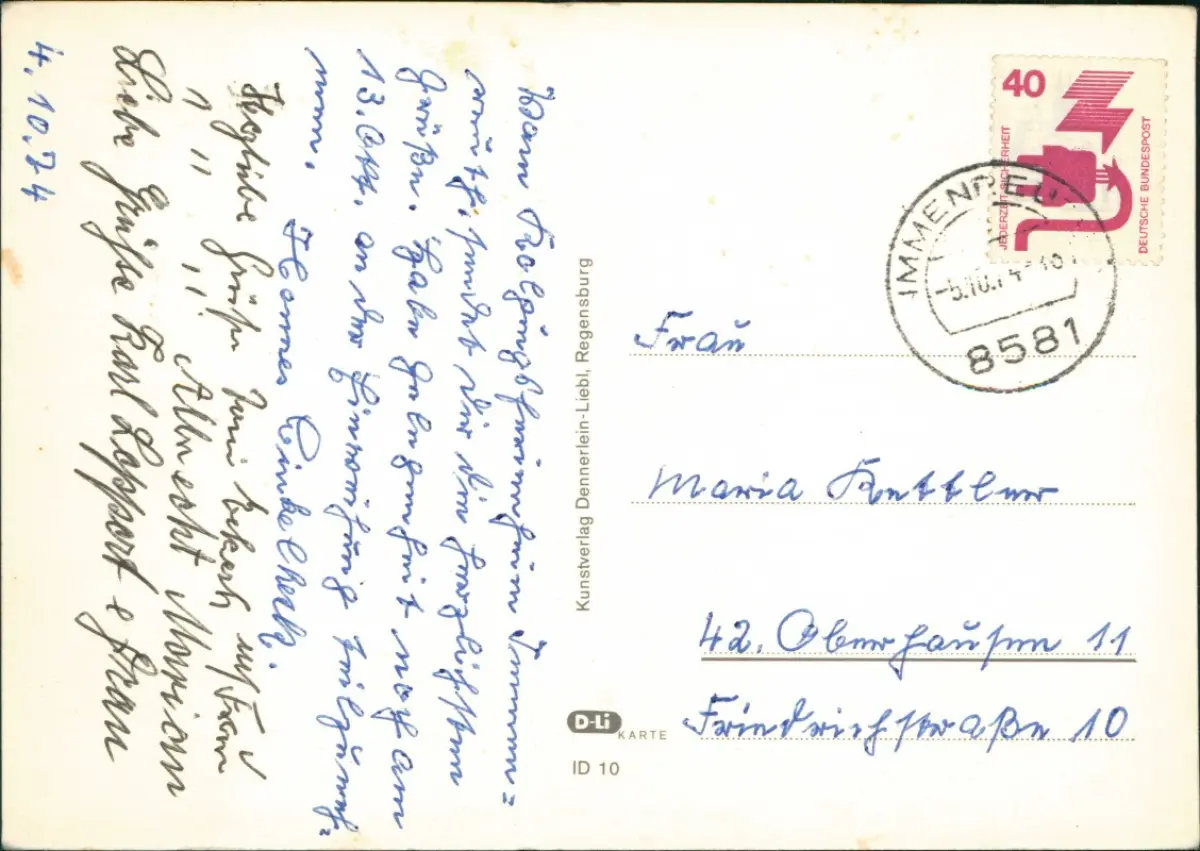 4.10.74
Kolpingsferienheim Immen=
reuth, sendet dir die herzlichsten
Grüße. Habe Gelegenheit noch am
13. Okt. an der Einweihung teilzuneh=
men.
Hannes
Grüße Toni u Frau
" " Albrecht Marian
Liebe Grüße Karl Lappert & Frau
Kunstverlag Dennerlein-Liebl, Regensburg
D-Li KARTE
ID 10
40
JEDERZEIT SICHERHEIT
DEUTSCHE BUNDESPOST
IMMENREU
-5.10.74-10
8581
Frau
Maria Kettler
42. Oberhausen 11
Friedrichstraße 10